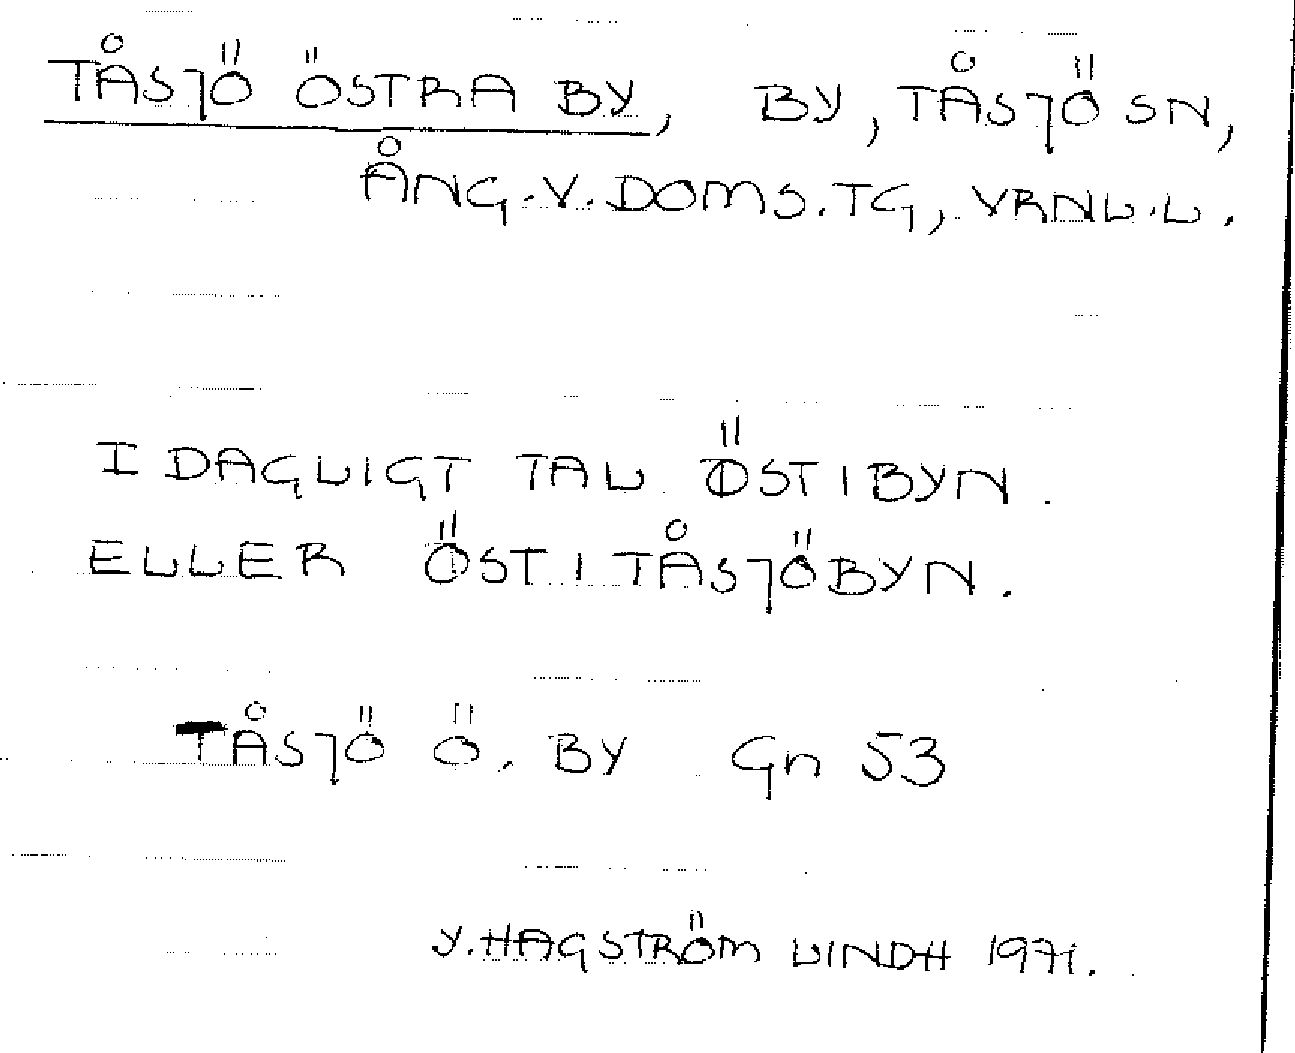 TÅSJÖ ÖSTRA BY, BY, TÅSJÖ SN,
ÅNG.V.DOMS.TG, VRNL.L.
I DAGLIGT TAL ÖST I BYN.
ELLER ÖST I TÅSJÖBYN.
TÅSJÖ Ö. BY Gn 53
Y. HAGSTRÖM LINDH 1971.